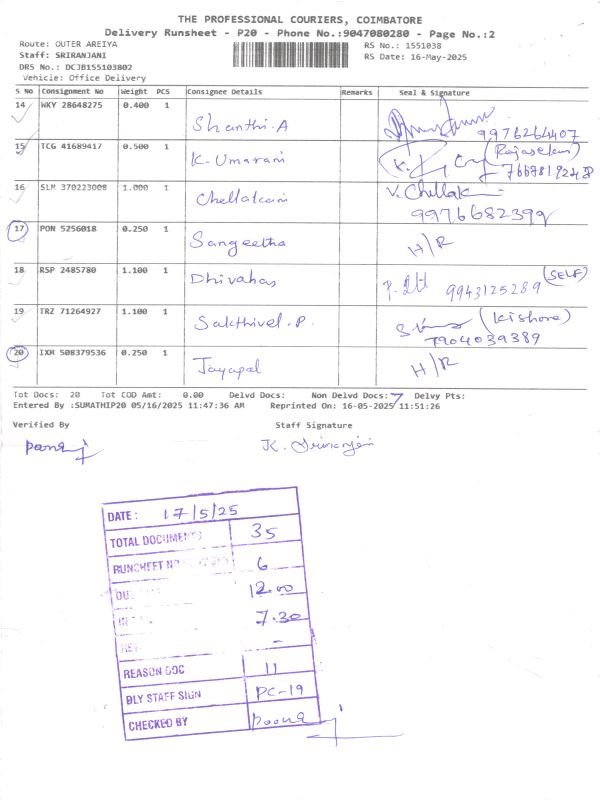 THE PROFESSIONAL COURIERS, COIMBATORE
Delivery Runsheet - P20 - Phone No.:9047080280 - Page No.:2
Route: OUTER AREIYA
RS No.: 1551038
Staff: SRIRANJANI
RS Date: 16-May-2025
DRS No.: DCJB155103802
Vehicle: Office Delivery
S No Consignment No Weight PCS Consignee Details Remarks Seal & Signature
14 WKY 28648275 0.400 1 Shanthi.A 9976264407
15 TCG 41689417 0.500 1 K. Umarani (Rajasekar)
16 SLM 370223008 1.000 1 Chellatcani V. Chellak
9976682399
17 PON 5256018 0.250 1 Sangeetha H/R
18 RSP 2485780 1.100 1 Dhivahas 9943125289 (SELF)
19 TRZ 71264927 1.100 1 Sakthivel.P. (Kishore)
7904039389
20 IXM 508379536 0.250 1 Jayapal H/R
Tot Docs: 20 Tot COD Amt: 0.00 Delvd Docs: Non Delvd Docs: 7 Delvy Pts:
Entered By :SUMATHIP20 05/16/2025 11:47:36 AM Reprinted On: 16-05-2025 11:51:26
Verified By Staff Signature
DATE: 17/5/25
TOTAL DOCUMENTS 35
RUNCHEET NO 6
12.00
7.30
-
REASON DOC 11
BLY STAFF SIGN PC-19
CHECKED BY